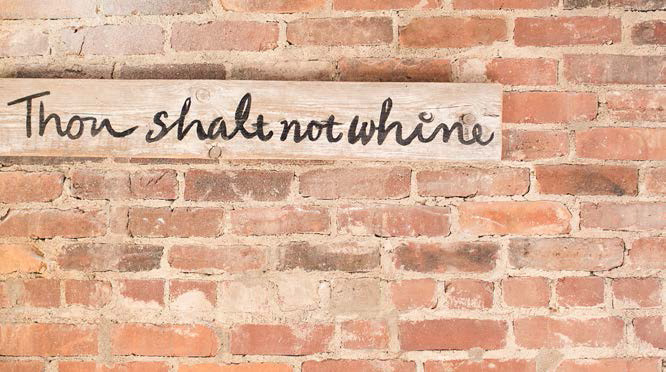 Thou shalt not whine